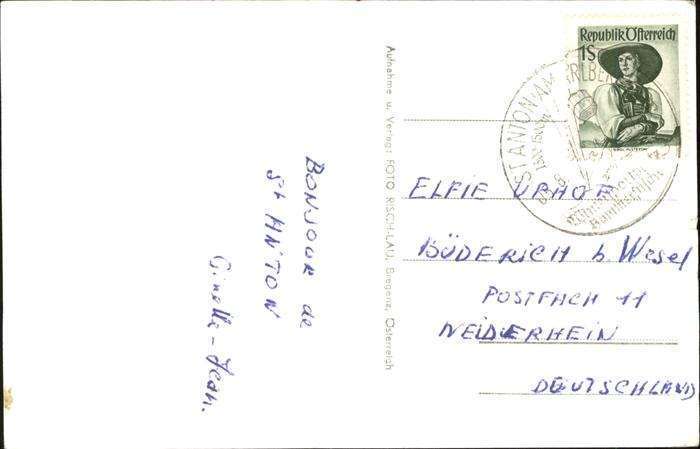 BONJOUR de
St ANTON
Ginette - Jean.
Aufnahme u. Verlag: FOTO RISCH-LAU, Bregenz, Österreich
Republik Österreich
1S
ST ANTON AM ARLBERG
ELFIE
BÜDERICH b. Wesel
POSTFACH 11
NEIDERHEIN
DEUTSCHLAND